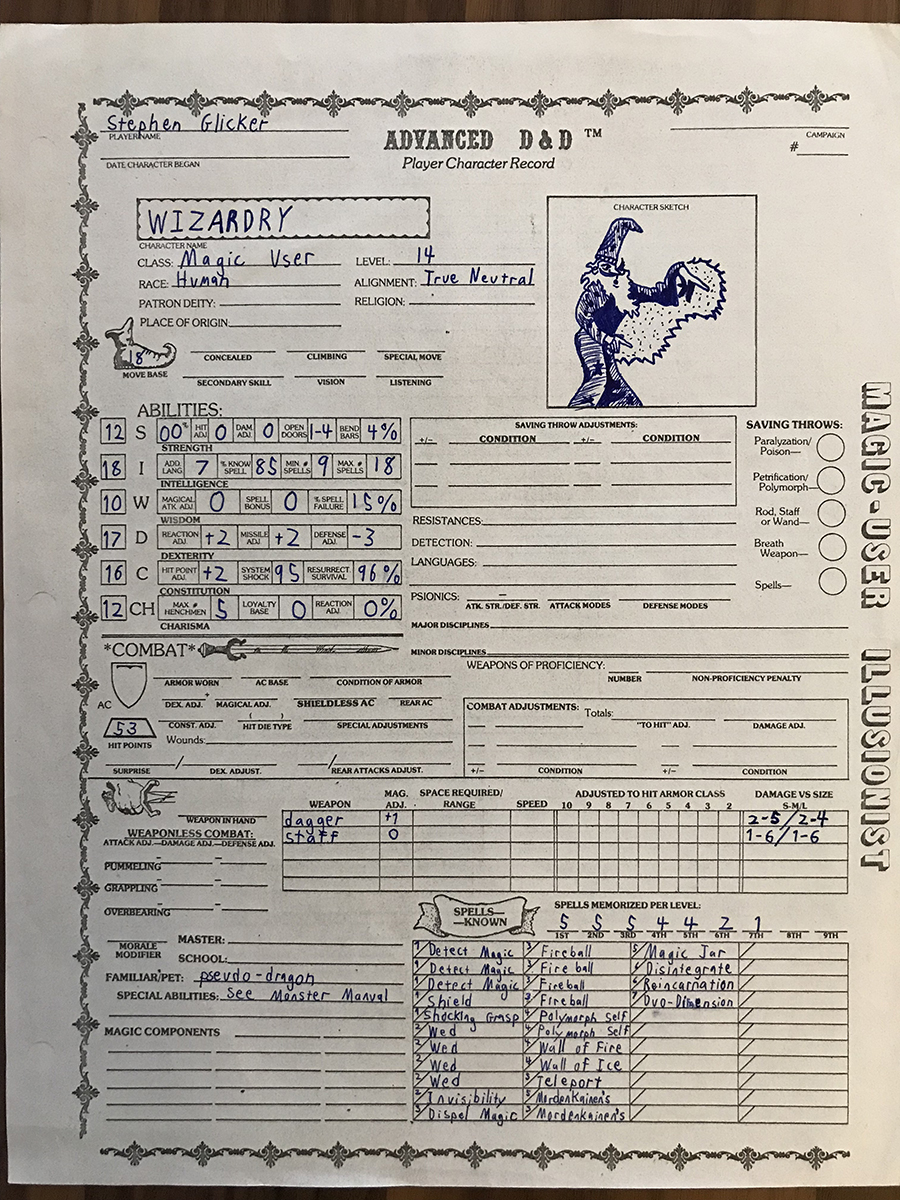 Stephen Glicker
PLAYER NAME
DATE CHARACTER BEGAN
ADVANCED D&D ™
Player Character Record
CAMPAIGN
#
WIZARDRY
CHARACTER NAME
CLASS: Magic User LEVEL: 14
RACE: Human ALIGNMENT: True Neutral
PATRON DEITY: RELIGION:
PLACE OF ORIGIN
CHARACTER SKETCH
18
MOVE BASE
CONCEALED CLIMBING SPECIAL MOVE
SECONDARY SKILL VISION LISTENING
ABILITIES:
12 S 00% HIT ADJ 0 DAM ADJ. 0 OPEN DOORS 1-4 BEND BARS 4%
STRENGTH
18 I ADD. LANG 7 % KNOW SPELL 85 MIN # SPELLS 9 MAX # SPELLS 18
INTELLIGENCE
10 W MAGICAL ATK ADJ 0 SPELL BONUS 0 % SPELL FAILURE 15%
WISDOM
17 D REACTION ADJ +2 MISSILE ADJ +2 DEFENSE ADJ -3
DEXTERITY
16 C HIT POINT ADJ +2 SYSTEM SHOCK 95 RESURRECT. SURVIVAL 96%
CONSTITUTION
12 CH MAX # HENCHMEN 5 LOYALTY BASE 0 REACTION ADJ. 0%
CHARISMA
SAVING THROW ADJUSTMENTS:
+/- CONDITION +/- CONDITION
RESISTANCES:
DETECTION:
LANGUAGES:
PSIONICS:
ATK. STR./DEF. STR. ATTACK MODES DEFENSE MODES
MAJOR DISCIPLINES
MINOR DISCIPLINES
SAVING THROWS:
Paralyzation/
Poison—
Petrification/
Polymorph—
Rod, Staff
or Wand—
Breath
Weapon—
Spells—
MAGIC-USER ILLUSIONIST
*COMBAT*
AC
ARMOR WORN AC BASE CONDITION OF ARMOR
+
DEX. ADJ. MAGICAL ADJ. SHIELDLESS AC REAR AC
53
HIT POINTS
( )
CONST. ADJ. HIT DIE TYPE SPECIAL ADJUSTMENTS
Wounds:
SURPRISE / DEX. ADJUST. / REAR ATTACKS ADJUST.
WEAPONS OF PROFICIENCY:
NUMBER NON-PROFICIENCY PENALTY
COMBAT ADJUSTMENTS: Totals:
"TO HIT" ADJ. DAMAGE ADJ.
+/- CONDITION +/- CONDITION
WEAPON IN HAND
WEAPONLESS COMBAT:
ATTACK ADJ.—DAMAGE ADJ.—DEFENSE ADJ.
PUMMELING
GRAPPLING
OVERBEARING
WEAPON MAG. ADJ. SPACE REQUIRED/ RANGE SPEED ADJUSTED TO HIT ARMOR CLASS DAMAGE VS SIZE
10 9 8 7 6 5 4 3 2 S-M/L
dagger +1 2-5/2-4
staff 0 1-6/1-6
MORALE MODIFIER
MASTER:
SCHOOL:
FAMILIAR/PET: pseudo-dragon
SPECIAL ABILITIES: See Monster Manual
MAGIC COMPONENTS
SPELLS—
—KNOWN
SPELLS MEMORIZED PER LEVEL:
5 5 5 4 4 2 1
1ST 2ND 3RD 4TH 5TH 6TH 7TH 8TH 9TH
1/ Detect Magic 3/ Fireball 5/ Magic Jar
1/ Detect Magic 3/ Fire ball 6/ Disintegrate
1/ Detect Magic 3/ Fireball 6/ Reincarnation
1/ Shield 3/ Fireball 7/ Duo-Dimension
1/ Shocking Grasp 4/ Polymorph Self
2/ Wed 4/ Polymorph Self
2/ Wed 4/ Wall of Fire
2/ Wed 4/ Wall of Ice
2/ Wed Teleport
2/ Invisibility Mordenkainen's
3/ Dispel Magic Mordenkainen's